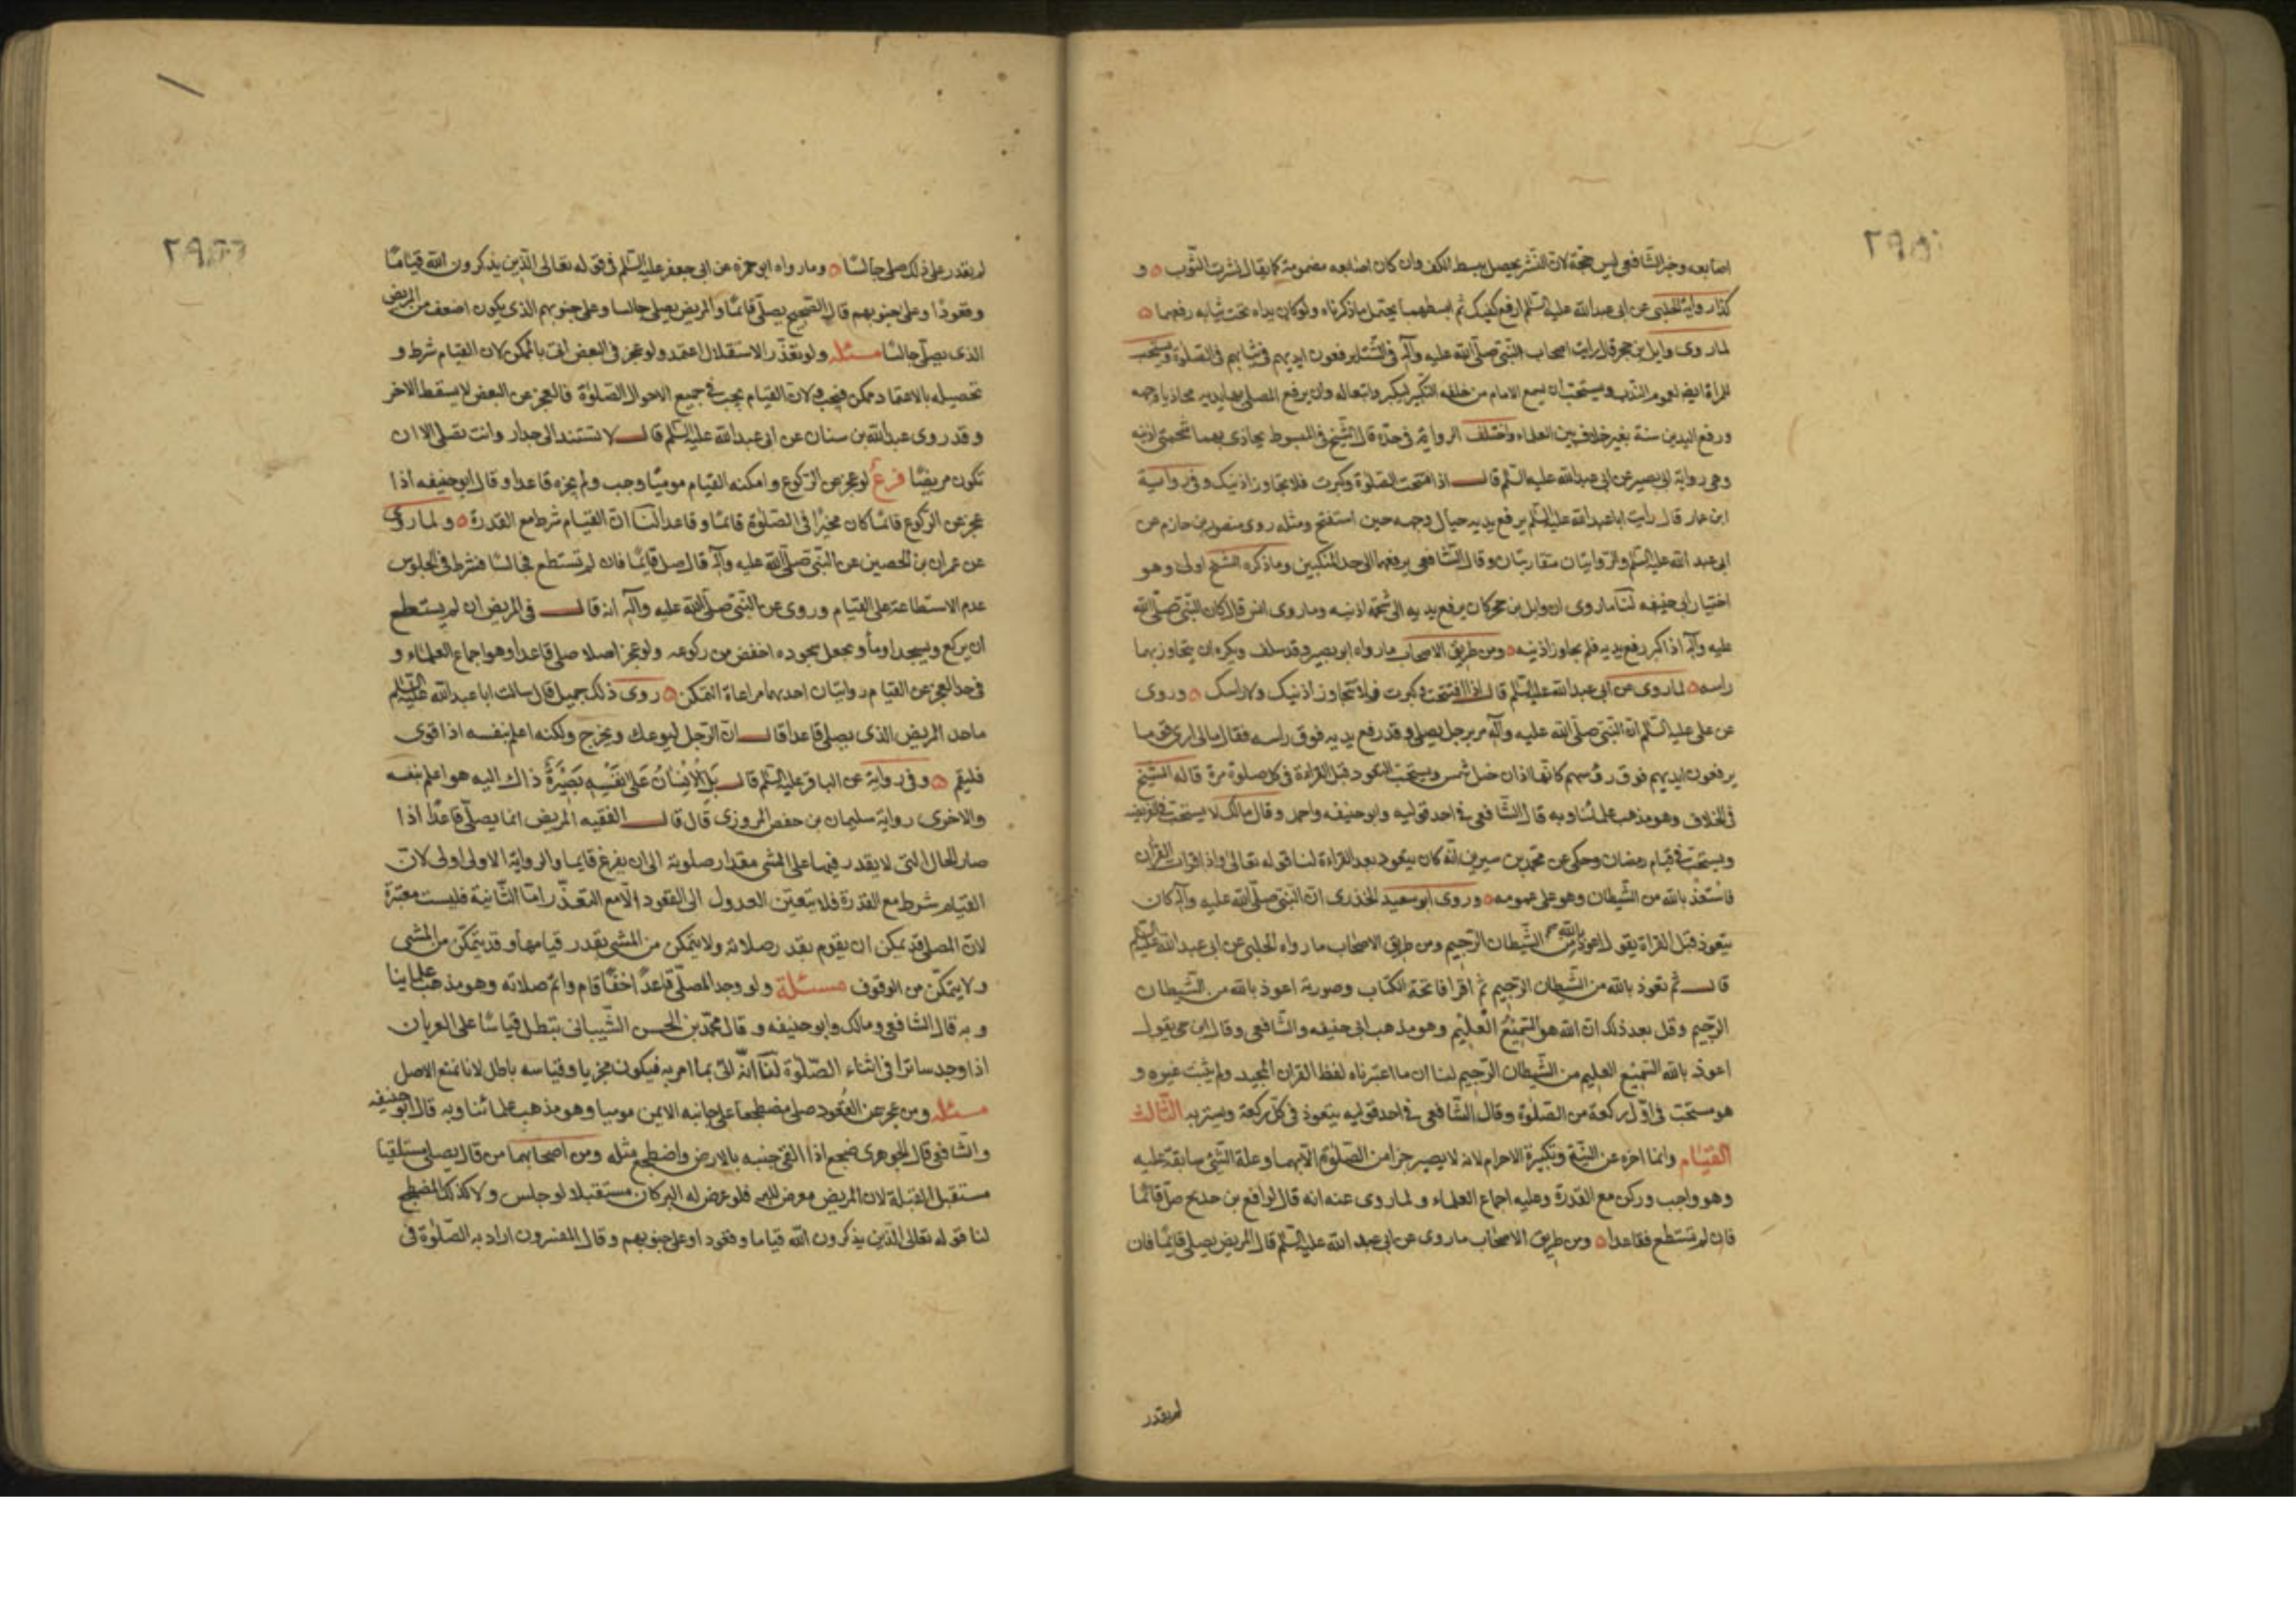 اصابعه وخبر الشافعي ليس حجة لان النشر يحصل ببسط الكف وان كان اصابعه مضمومة كما يقال نشرت الثوب و
كذا رواية الحلبي عن ابى عبدالله عليه السلم ارفع كفيك ثم ابسطهما يحتمل ما ذكرناه ولو كان يداه تحت ثيابه رفعهما
لما روى وايل بن حجر قال رايت اصحاب النبي صلى الله عليه وآله في الشتا يرفعون ايديهم في ثيابهم في الصلوة ويستحب
للمراة ايضا لعموم الندب ويستحب ان يسمع الامام من خلفه التكبير ليكبروا بتعاله وان يرفع المصلى بها يديه محاذيا وجهه
ورفع اليدين سنة بغير خلاف بين العلماء واختلف الرواية في حده قال الشيخ في المبسوط يحاذى بهما شحمتى اذنيه
وهى رواية ابى بصير عن ابى عبدالله عليه السلم قال اذا افتتحت الصلوة وكبرت فلا تجاوز اذنيك وفي رواية
ابن عمار قال رايت ابا عبدالله عليه السلم يرفع يديه حيال وجهه حين استفتح ومثله روى منصور بن حازم عن
ابى عبد الله عليه السلم والروايتان متقاربتان وقال الشافعي يرفعهما الى حد المنكبين وما ذكره الشيخ اولى وهو
اختيار ابى حنيفه لنا ما روى ان وايل بن حجر كان يرفع يديه الى شحمة اذنيه وما روى انس قال كان النبي صلى الله
عليه وآله اذا كبر رفع يديه فلم يجاوز اذنيه ومن طريق الاصحاب ما رواه ابو بصير وقد سلف ويكره ان يتجاوز بهما
راسه لما روى عن ابى عبدالله عليه السلم قال اذا افتتحت وكبرت فلا تتجاوز اذنيك ولا راسك وروى
عن على عليه السلم ان النبي صلى الله عليه وآله مر برجل يصلى وقد رفع يديه فوق راسه فقال مالى ارى قوما
يرفعون ايديهم فوق رؤسهم كانها اذان خيل شمس ويستحب التعوذ قبل القراءة في كل صلوة مرة قاله الشيخ
في الخلاف وهو مذهب علمائنا وبه قال الشافعي في احد قوليه وابو حنيفه واحمد وقال مالك لا يستحب في الفريضه
ويستحب في قيام رمضان وحكى عن محمد بن سيرين انه كان يتعوذ بعد القراءة لنا قوله تعالى واذا قرات القران
فاستعذ بالله من الشيطان وهو على عمومه وروى ابو سعيد الخدرى ان النبي صلى الله عليه وآله كان
يتعوذ قبل القراة يقول اعوذ بالله من الشيطان الرجيم ومن طريق الاصحاب ما رواه الحلبي عن ابى عبد الله عليه السلم
قال ثم تعوذ بالله من الشيطان الرجيم ثم اقرا فاتحة الكتاب وصورته اعوذ بالله من الشيطان
الرجيم وقل بعد ذلك ان الله هو السميع العليم وهو مذهب ابى حنيفه والشافعي وقال ابن حى يقول
اعوذ بالله السميع العليم من الشيطان الرجيم لنا ان ما اعتبرناه لفظ القران المجيد ولم يثبت غيره و
هو مستحب في اول ركعة من الصلوة وقال الشافعي في احد قوليه يتعوذ في كل ركعة ويستر به الثالث
القيام وانما اخره عن النية وتكبيرة الاحرام لانه لا يصير جزا من الصلوة الا بهما وعلة الشئ سابقة عليه
وهو واجب وركن مع القدرة وعليه اجماع العلماء ولما روى عنه انه قال لرافع بن خديج صل قائما
فان لم تستطع فقاعدا ومن طريق الاصحاب ما روى عن ابى عبد الله عليه السلم قال المريض يصلى قائما فان
لم يقدر
لم يقدر على ذلك صلى جالسا وما رواه ابو حمزه عن ابى جعفر عليه السلم في قوله تعالى الذين يذكرون الله قياما
وقعودا وعلى جنوبهم قال الصحيح يصلى قائما والمريض يصلى جالسا وعلى جنوبهم الذى يكون اضعف من المريض
الذى يصلى جالسا مسئله ولو تعذر الاستقلال اعتمد ولو عجز في البعض اتى بالممكن لان القيام شرط و
تحصيله بالاعتماد ممكن فيجب ولان القيام يجب في جميع الاحوال الصلوة فالعجز عن البعض لا يسقط الاخر
وقد روى عبدالله بن سنان عن ابى عبدالله عليه السلم قال لا تستند الى جدار وانت تصلى الا ان
تكون مريضا فرع لو عجز عن الركوع وامكنه القيام موميا وجب ولم يجزه قاعدا وقال ابو حنيفه اذا
عجز عن الركوع قائما كان مخيرا في الصلوة قائما وقاعدا لنا ان القيام شرط مع القدرة ولما روى
عن عمران بن الحصين عن النبي صلى الله عليه وآله قال صل قائما فان لم تستطع فجالسا فشرط في الجلوس
عدم الاستطاعة على القيام وروى عن النبي صلى الله عليه وآله انه قال في المريض ان لم يستطع
ان يركع ويسجد اوما وجعل سجوده اخفض من ركوعه ولو عجز اصلا صلى قاعدا وهو اجماع العلماء و
في حد العجز عن القيام روايتان احديهما مراعاة التمكن روى ذلك جميل قال سالت ابا عبدالله عليه السلم
ما حد المريض الذى يصلى قاعدا قال ان الرجل ليوعك ويحرج ولكنه اعلم بنفسه اذا قوى
فليقم وفي رواية عن الباقر عليه السلم قال بل الانسان على نفسه بصيرة ذاك اليه هو اعلم بنفسه
والاخرى رواية سليمان بن حفص المروزى قال قال الفقيه المريض انما يصلى قاعدا اذا
صار الحال التى لا يقدر فيها على المشى مقدار صلوته الى ان يفرغ قايما والرواية الاولى اولى لان
القيام شرط مع القدرة فلا يتعين العدول الى القعود الا مع التعذر اما الثانية فليست معتبرة
لان المصلى قد يمكن ان يقوم بقدر صلاته ولا يتمكن من المشى بقدر قيامها وقد يتمكن من المشى
ولا يتمكن من الوقوف مسئلة ولو وجد المصلى قاعدا خفا قام واتم صلاته وهو مذهب علماينا
وبه قال الشافعي ومالك وابو حنيفه وقال محمد بن الحسن الشيبانى تبطل قياسا على العريان
اذا وجد ساترا في اثناء الصلوة لنا انه اتى بما امر به فيكون مجزيا وقياسه باطل لانا نمنع الاصل
مسئله ومن عجز عن القعود صلى مضطجعا على جانبه الايمن موميا وهو مذهب علمائنا وبه قال ابو حنيفه
والشافعي قال الجوهرى ضجع اذا القى جنبه بالارض واضطجع مثله ومن اصحابهما من قال يصلى مستلقيا
مستقبل القبلة لان المريض معرض للبرء فلو عرض له البر كان مستقبلا لو جلس ولا كذلك المضطجع
لنا قوله تعالى الذين يذكرون الله قياما وقعودا وعلى جنوبهم وقال المفسرون اراد به الصلوة في